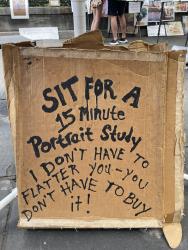 SIT FOR A
15 Minute
Portrait Study
I DON'T HAVE TO
FLATTER YOU - YOU
DON'T HAVE TO BUY
it!